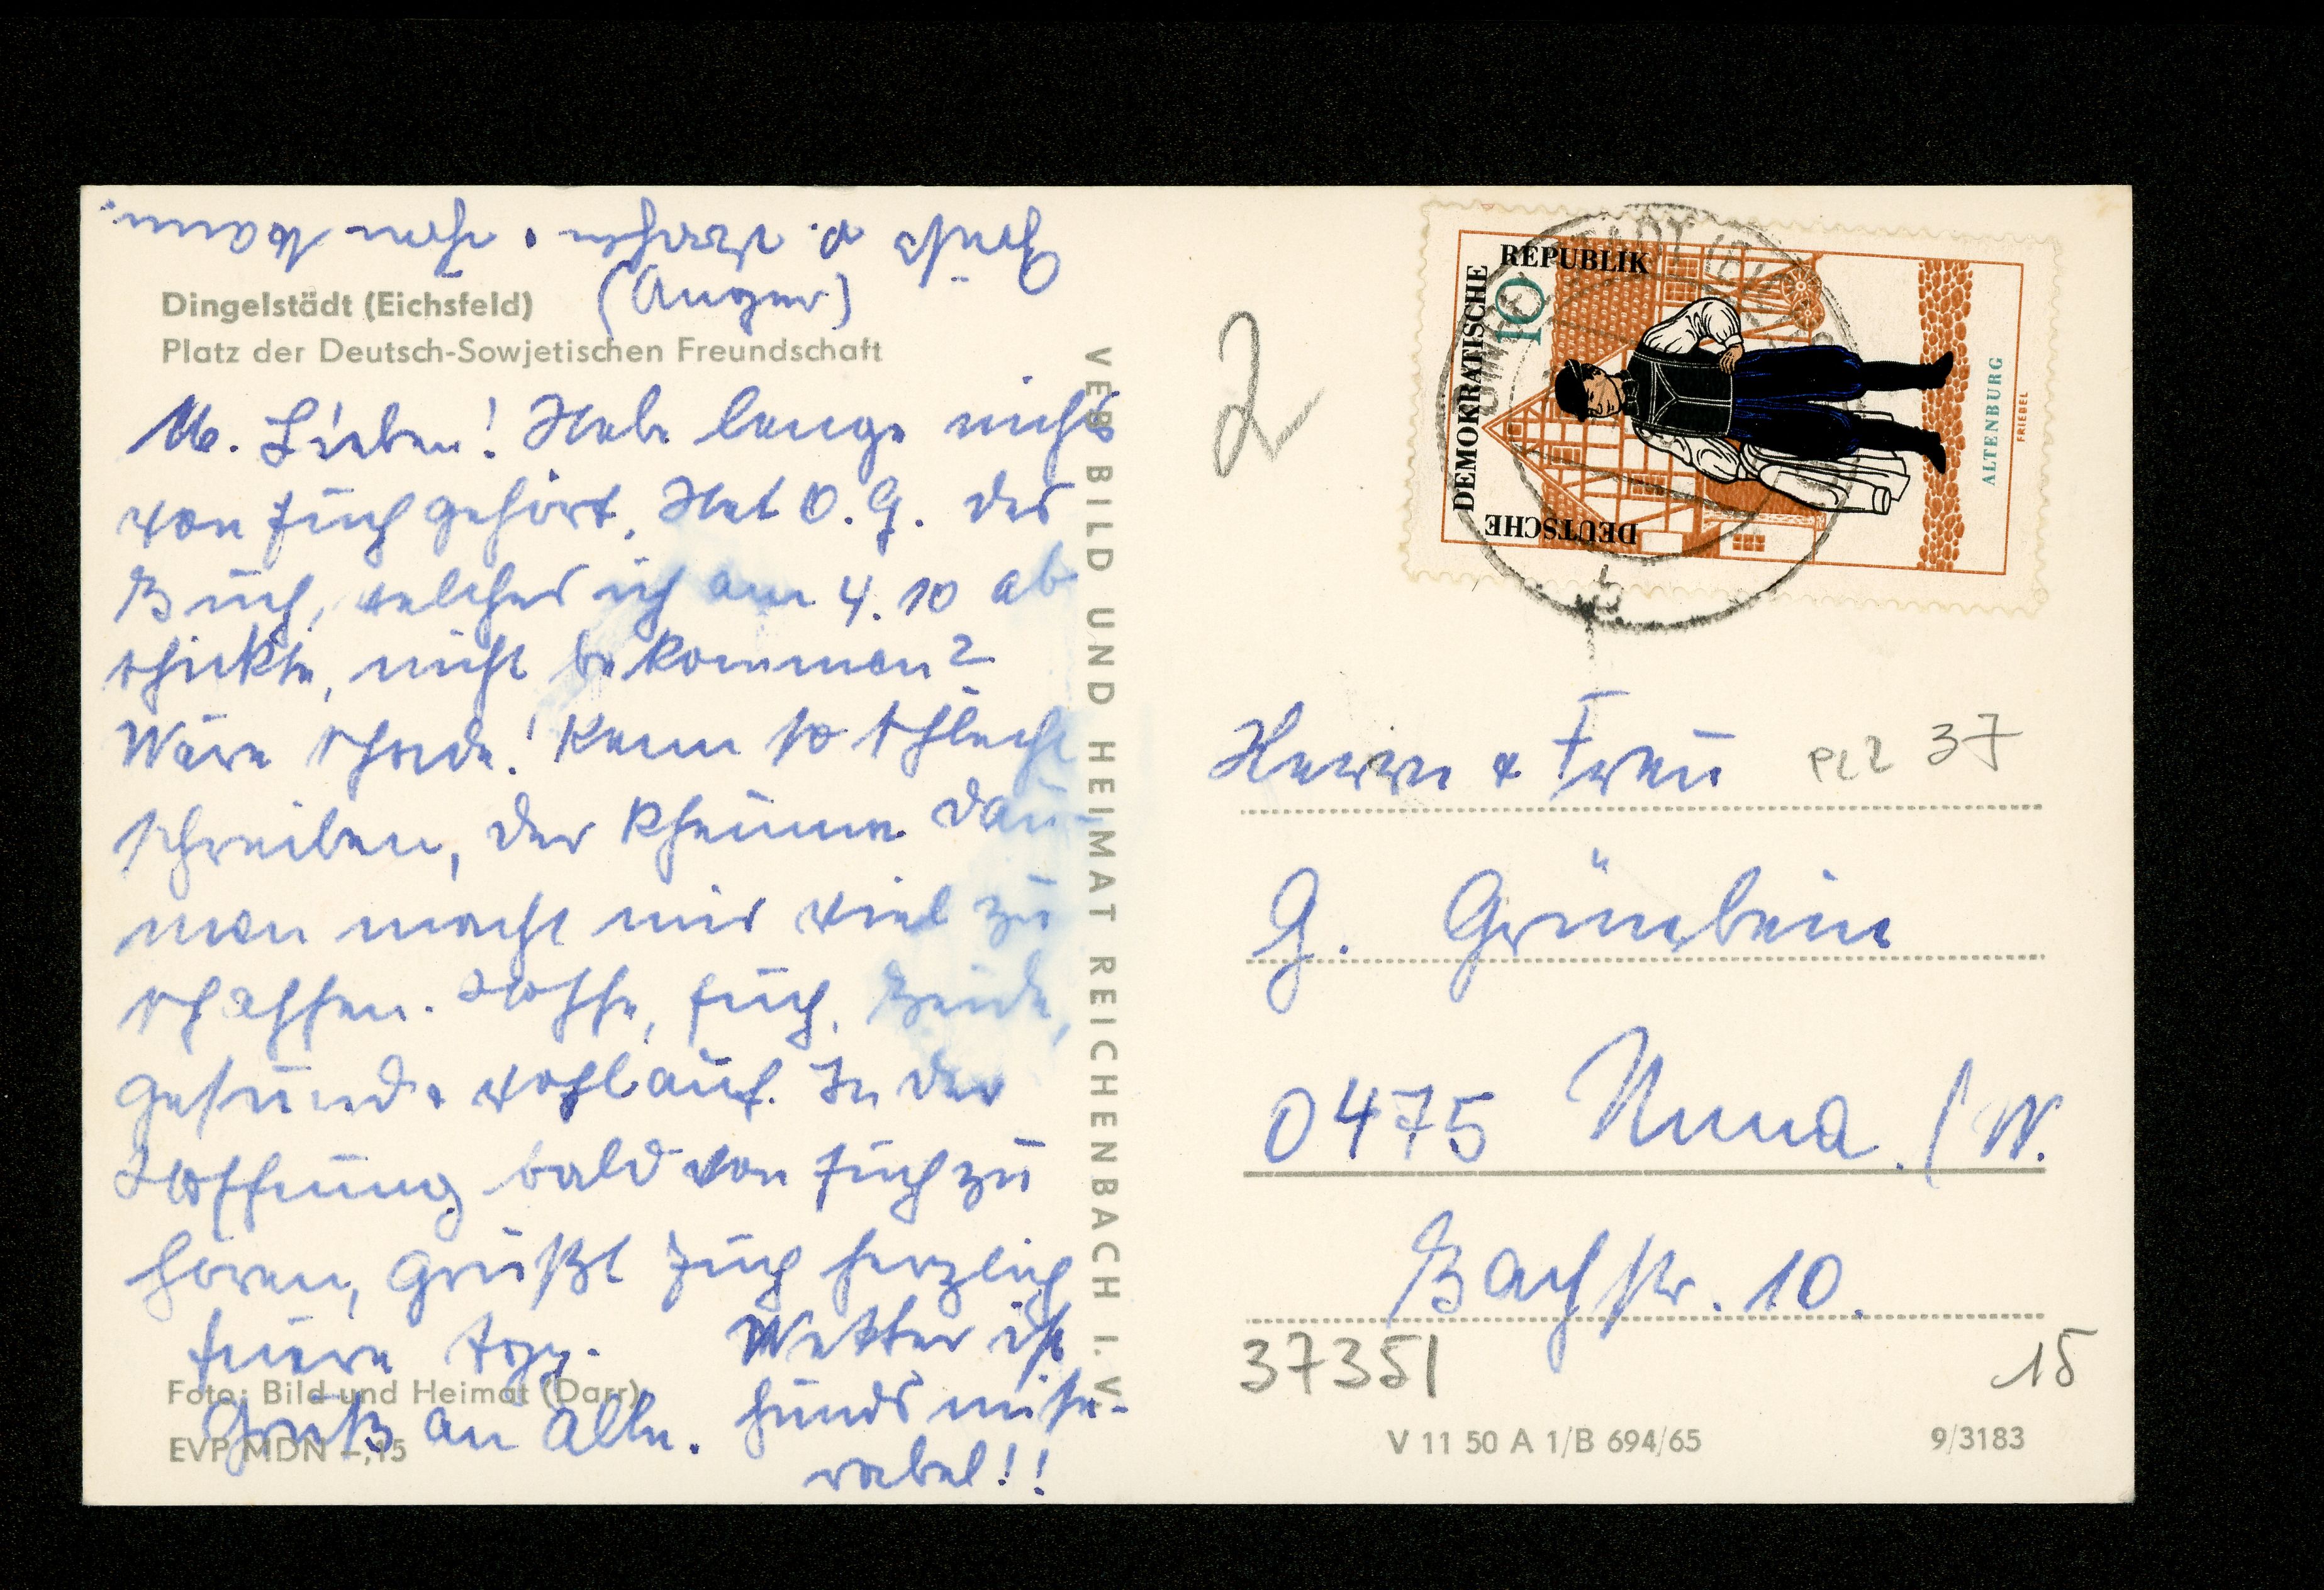 Dingelstädt (Eichsfeld)
(Anger)
Platz der Deutsch-Sowjetischen Freundschaft
M. Lieben! Habe lange nichts
von Euch gehört. Hat O. G. das
Buch, welches ich am 4. 10 ab
schickte, nicht bekommen?
Wäre schade! Kann so schlecht
schreiben, der Rheuma Dau-
men macht mir viel zu
schaffen. Hoffe, Euch beide,
gesund & wohlauf. In der
Hoffnung bald von Euch zu
hören, grüßt Euch herzlich
Euere
Gruß an Alle.
Wetter ist
hunds mise-
rabel!!
Foto: Bild und Heimat (Darr)
EVP MDN –,15
VEB BILD UND HEIMAT REICHENBACH I. V.
2
DEUTSCHE
DEMOKRATISCHE
REPUBLIK
10
ALTENBURG
FRIEBEL
Herrn & Frau
PLZ 37
G. Grünbein
0475 Unna. / W.
Bachstr. 10.
37351
15
V 11 50 A 1/B 694/65
9/3183